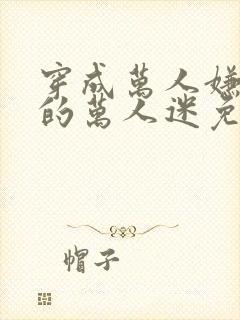 穿成萬人嫌
的萬人迷免
帽子